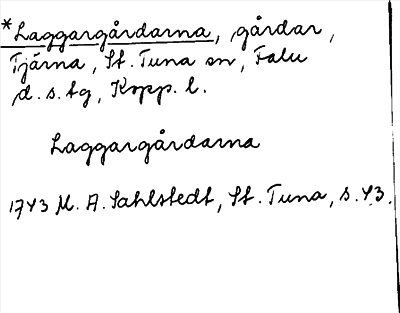 *Laggargårdarna, gårdar,
Tjärna, St. Tuna sn, Falu
d. s. tg, Kopp. l.
Laggargårdarna
1743 M. A. Sahlstedt, St. Tuna, s. 43.